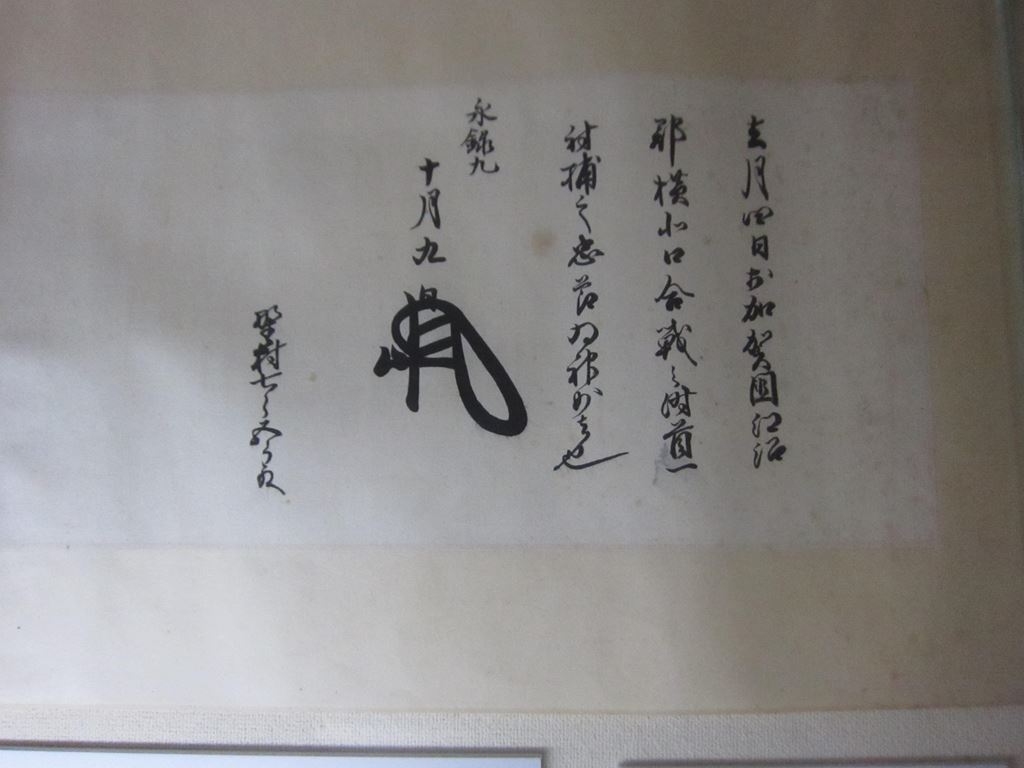 去月四日於加賀国江沼
郡横北口合戦之時首一
討捕之忠節為神妙者也
永録九
十月九日
野村七兵衛尉殿